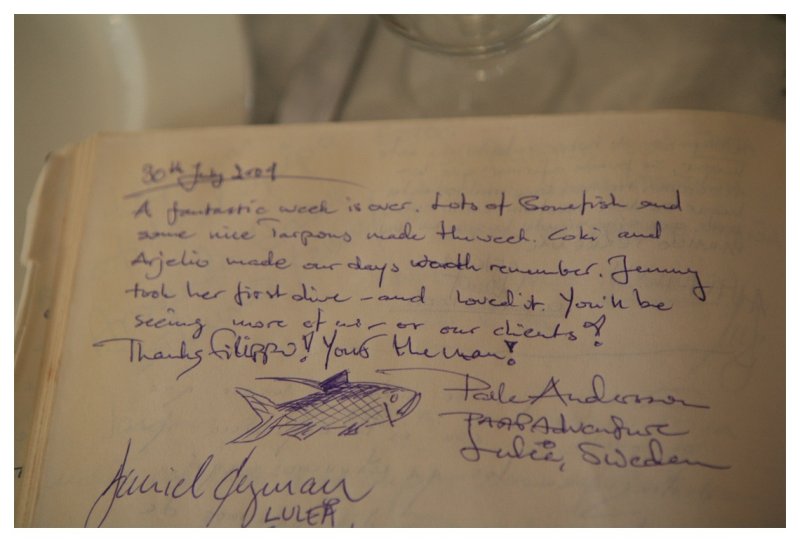 30th July 2009
A fantastic week is over. Lots of Bonefish and
some nice Tarpons made the week. Coki and
Arjelio made our days worth remember. Jemmy
took her first dive – and loved it. You'll be
seeing more of us – or our clients!
Thanks Filippo! Your the man!
Andersson
Adventure
Luleå, Sweden
LULEÅ